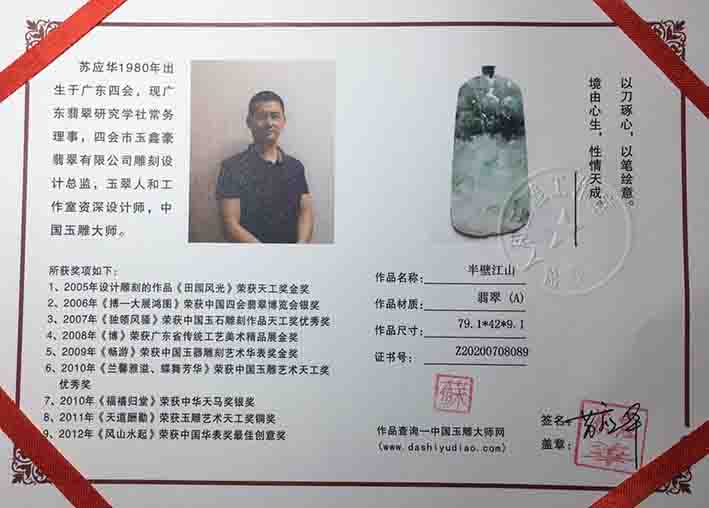 苏应华1980年出
生于广东四会，现广
东翡翠研究学社常务
理事，四会市玉鑫豪
翡翠有限公司雕刻设
计总监，玉翠人和工
作室资深设计师，中
国玉雕大师。
以刀琢心，以笔绘意。
境由心生，性情天成。
所获奖项如下：
1、2005年设计雕刻的作品《田园风光》荣获天工奖金奖
2、2006年《博一大展鸿图》荣获中国四会翡翠博览会银奖
3、2007年《独领风骚》荣获中国玉石雕刻作品天工奖优秀奖
4、2008年《博》荣获广东省传统工艺美术精品展金奖
5、2009年《畅游》荣获中国玉器雕刻艺术华表奖金奖
6、2010年《兰馨雅滋、蝶舞芳华》荣获中国玉雕艺术天工奖
优秀奖
7、2010年《福禧归堂》荣获中华天马奖银奖
8、2011年《天道酬勤》荣获玉雕艺术天工奖铜奖
9、2012年《风山水起》荣获中国华表奖最佳创意奖
作品名称： 半壁江山
作品材质： 翡翠 (A)
作品尺寸： 79.1*42*9.1
证书号： Z20200708089
作品查询一中国玉雕大师网
(www.dashiyudiao.com)
签名：
盖章：